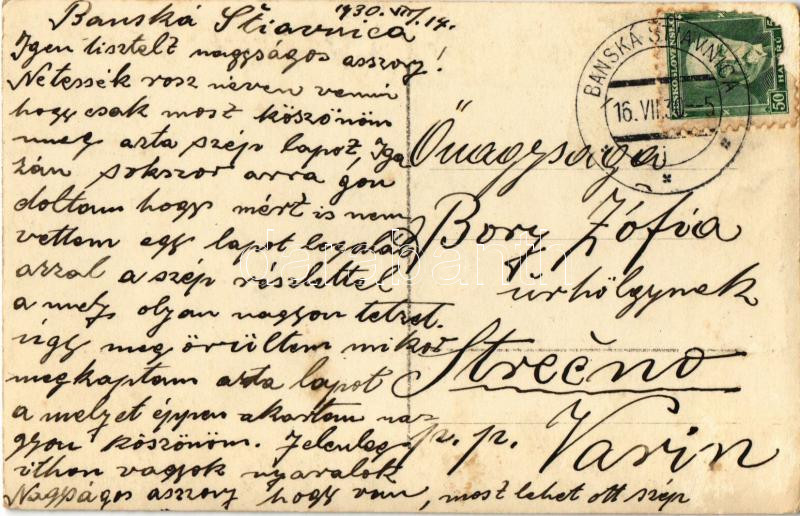 Banská Štiavnica 1930. VII/14.
Igen tisztelt nagyságos asszony!
Netessék rosz néven venni
hogy csak most köszönöm
meg azta szép lapot, Iga
zán sokszor arra gon
doltam hogy mért is nem
vettem egy lapot legalább
azzal a szép részlettel
a mely olyan nagyon tetzet.
úgy meg örültem mikor
megkaptam azta lapot
a melyet éppen akartam na
gyon köszönöm. Jelenleg
ithon vagyok nyaralok
Nagyságos asszony hogy van, most lehet ott szép
BANSKÁ ŠTIAVNICA
16. VII. 30 -5
ČESKOSLOVENSKO
50
Önagysága
Bory Zófia
úrhölgynek
Strečno
p. p. Varin
darabanth